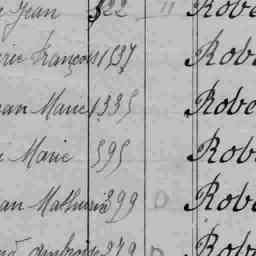 Jean 522 " Robe
rie François 1537 Robe
ean Marie 1335 Robe
Marie 595 Robe
ean Mathurin 399 D Robe
Ambroise 279 D Robe